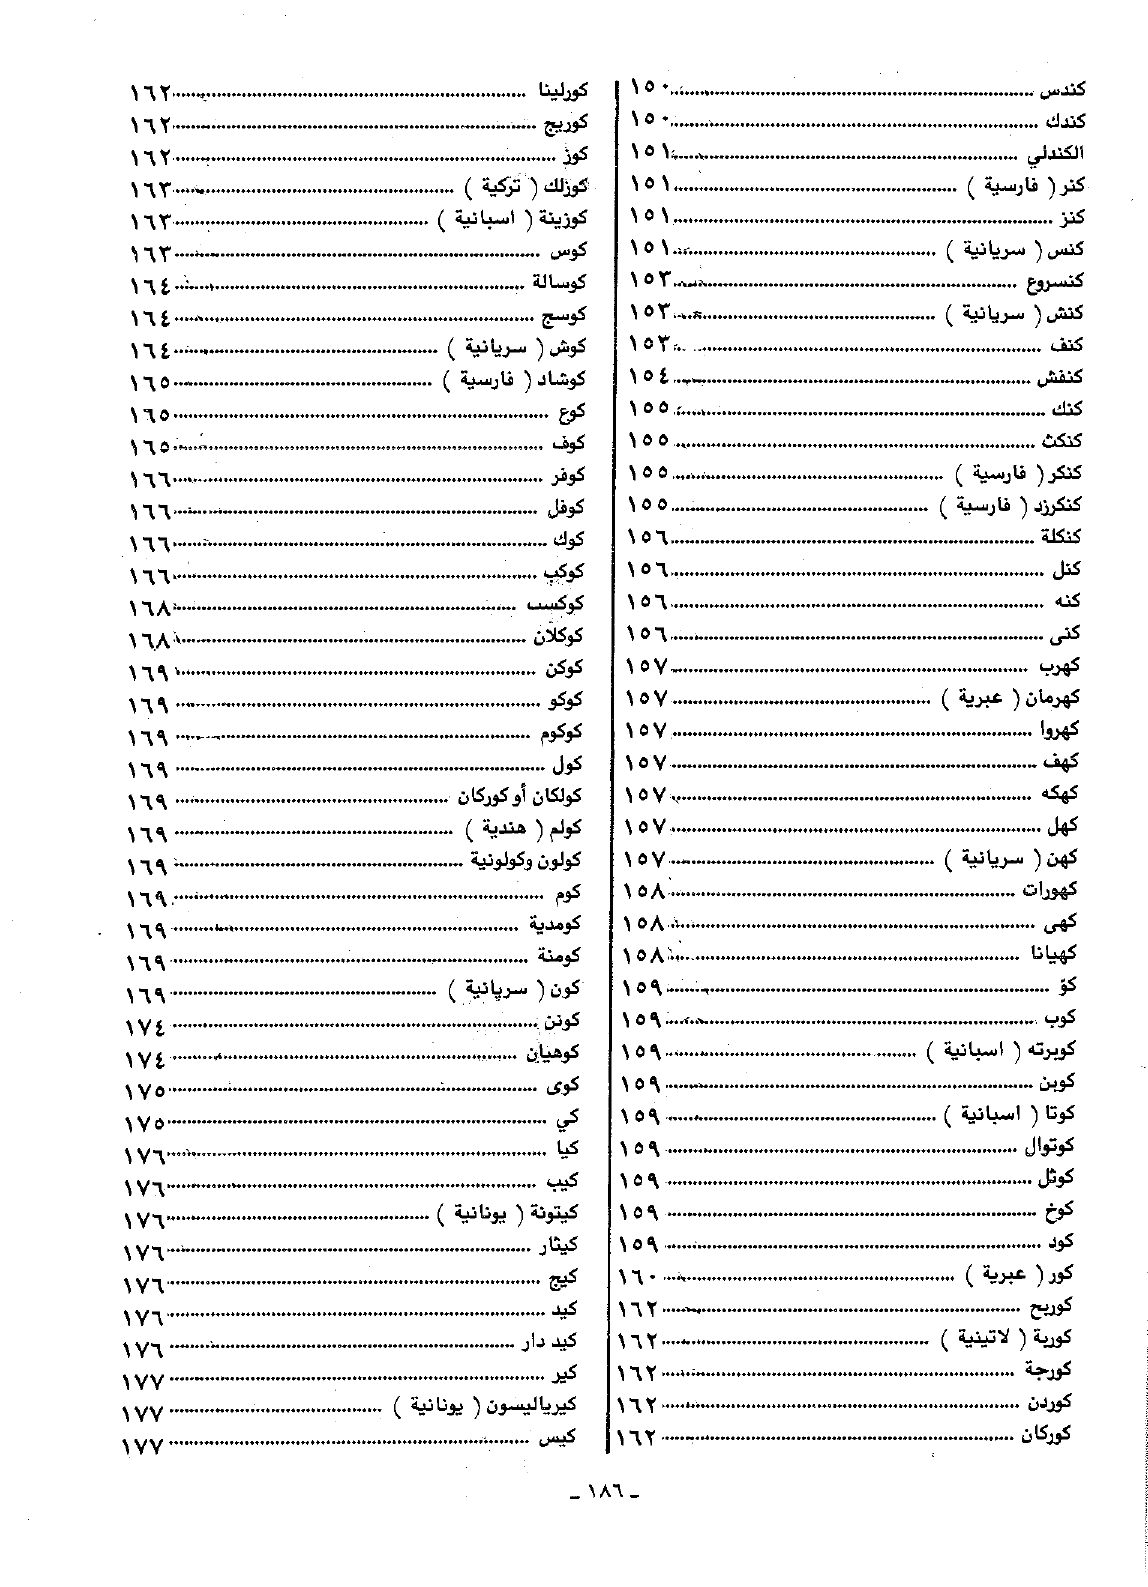 كندس ١٥٠
كندك ١٥٠
الكندلي ١٥١
كنر ( فارسية ) ١٥١
كنز ١٥١
كنس ( سريانية ) ١٥١
كنسروع ١٥٣
كنش ( سريانية ) ١٥٣
كنف ١٥٣
كنفش ١٥٤
كنك ١٥٥
كنكث ١٥٥
كنكر ( فارسية ) ١٥٥
كنكرزد ( فارسية ) ١٥٥
كنكلة ١٥٦
كنل ١٥٦
كنه ١٥٦
كنى ١٥٦
كهرب ١٥٧
كهرمان ( عبرية ) ١٥٧
كهروا ١٥٧
كهف ١٥٧
كهكه ١٥٧
كهل ١٥٧
كهن ( سريانية ) ١٥٧
كهورات ١٥٨
كهى ١٥٨
كهيانا ١٥٨
كؤ ١٥٩
كوب ١٥٩
كوبرته ( اسبانية ) ١٥٩
كوبن ١٥٩
كوتا ( اسبانية ) ١٥٩
كوتوال ١٥٩
كوثل ١٥٩
كوخ ١٥٩
كود ١٥٩
كور ( عبرية ) ١٦٠
كوريح ١٦٢
كورية ( لاتينية ) ١٦٢
كورجة ١٦٢
كوردن ١٦٢
كوركان ١٦٢
كورلينا ١٦٢
كوريج ١٦٢
كوز ١٦٢
كوزلك ( تركية ) ١٦٣
كوزينة ( اسبانية ) ١٦٣
كوس ١٦٣
كوسالة ١٦٤
كوسج ١٦٤
كوش ( سريانية ) ١٦٤
كوشاد ( فارسية ) ١٦٥
كوع ١٦٥
كوف ١٦٥
كوفر ١٦٦
كوفل ١٦٦
كوك ١٦٦
كوكب ١٦٦
كوكسب ١٦٨
كوكلان ١٦٨
كوكن ١٦٩
كوكو ١٦٩
كوكوم ١٦٩
كول ١٦٩
كولكان أو كوركان ١٦٩
كولم ( هندية ) ١٦٩
كولون وكولونية ١٦٩
كوم ١٦٩
كومدية ١٦٩
كومنة ١٦٩
كون ( سريانية ) ١٦٩
كونن ١٧٤
كوهيان ١٧٤
كوى ١٧٥
كي ١٧٥
كيا ١٧٦
كيب ١٧٦
كيتونة ( يونانية ) ١٧٦
كيثار ١٧٦
كيج ١٧٦
كيد ١٧٦
كيد دار ١٧٦
كير ١٧٧
كيرياليسون ( يونانية ) ١٧٧
كيس ١٧٧
ـ ١٨٦ ـ